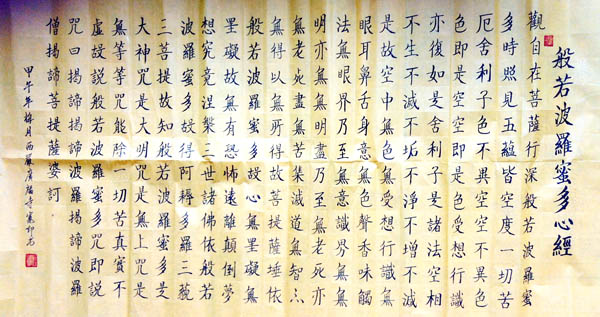 般若波羅蜜多心經
觀自在菩薩行深般若波羅蜜
多時照見五蘊皆空度一切苦
厄舍利子色不異空空不異色
色即是空空即是色受想行識
亦復如是舍利子是諸法空相
不生不滅不垢不淨不增不減
是故空中無色無受想行識無
眼耳鼻舌身意無色聲香味觸
法無眼界乃至無意識界無無
明亦無無明盡乃至無老死亦
無老死盡無苦集滅道無智亦
無得以無所得故菩提薩埵依
般若波羅蜜多故心無罣礙無
罣礙故無有恐怖遠離顛倒夢
想究竟涅槃三世諸佛依般若
波羅蜜多故得阿耨多羅三藐
三菩提故知般若波羅蜜多是
大神咒是大明咒是無上咒是
無等等咒能除一切苦真實不
虛故說般若波羅蜜多咒即說
咒曰揭諦揭諦波羅揭諦波羅
僧揭諦菩提薩婆訶
甲午年梅月